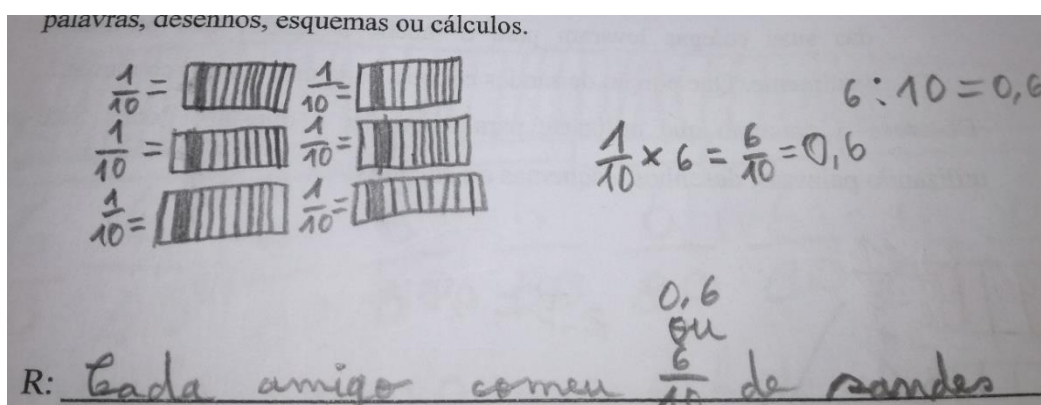 palavras, desenhos, esquemas ou cálculos.
1/10 = 1/10 =
6 : 10 = 0,6
1/10 = 1/10 =
1/10 × 6 = 6/10 = 0,6
1/10 = 1/10 =
0,6
ou
6/10
R: Cada amigo comeu de sandes